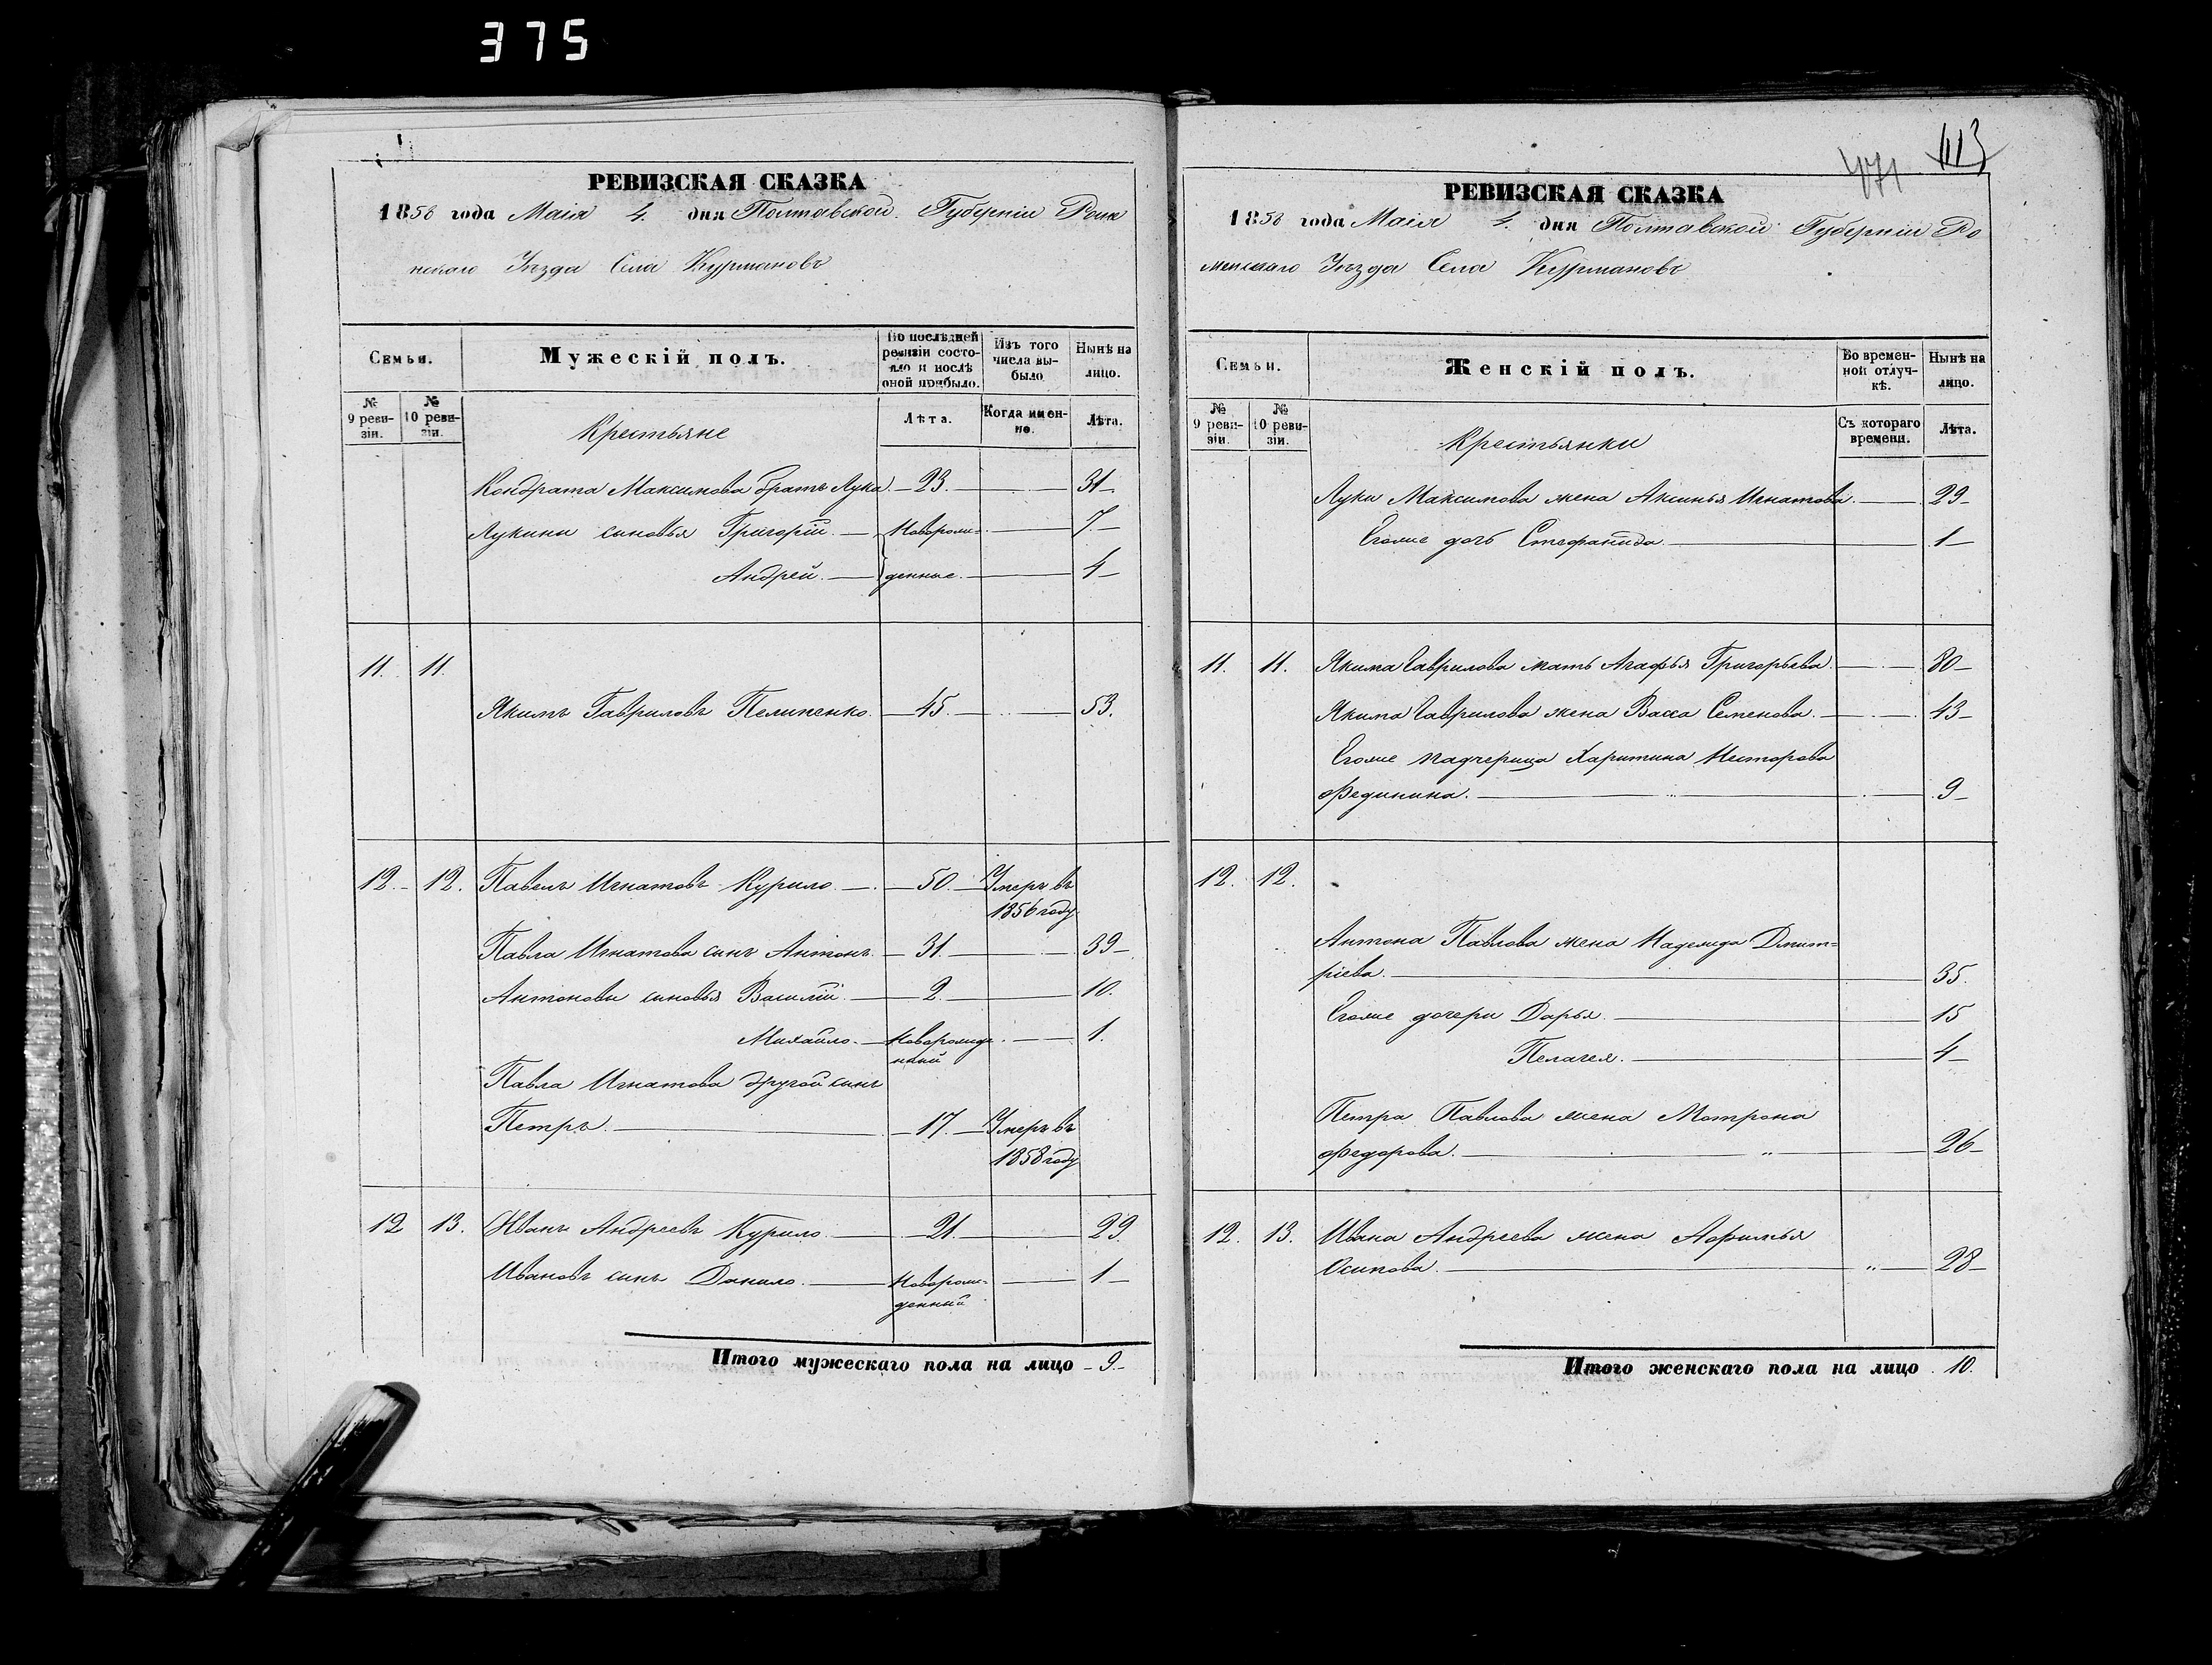 375
РЕВИЗСКАЯ СКАЗКА
1858 года Маія 4. дня Полтавской Губерніи Роме
нскаго Уѣзда Села Курмановъ
Семьи.
Мужескій полъ.
По послѣдней ревизіи состояло и послѣ оной прибыло.
Изъ того числа выбыло
Нынѣ на лицо.
№ 9 ревизіи.
№ 10 ревизіи.
Крестьяне
Лѣта.
Когда именно.
Лѣта.
Кондрата Максимова братъ Лука. — 23. — 31 —
Лукины сыновья Григорій. — Новорож= — 7. —
Андрей. — денные. — 4 —
11. 11.
Якимъ Гавриловъ Пелипенко. — 45. — 53.
12. — 12. Павелъ Игнатовъ Курило. — 50. — Умеръ въ
1856 году
Павла Игнатова сынъ Антонъ. — 31. — 39 —
Антоновы сыновья Василій. — 2. — 10.
Михайло. — Новорожде — 1.
нный
Павла Игнатова другой сынъ
Петръ. — 17. — Умеръ въ
1858 году
12 13. Иванъ Андреевъ Курило. — 21. — 29.
Ивановъ сынъ Данило. — Новорож= — 1 —
денный
Итого мужескаго пола на лицо — 9. —
471 113
РЕВИЗСКАЯ СКАЗКА
1858 года Маія 4. дня Полтавской Губерніи Ро
менскаго Уѣзда Села Курмановъ
Семьи.
Женскій полъ.
Во временной отлучкѣ.
Нынѣ на лицо.
№ 9 ревизіи.
№ 10 ревизіи.
Крестьянки
Съ котораго времени.
Лѣта.
Луки Максимова жена Аксинья Игнатова. — 29 —
Егоже дочь Стефанида. — 1 —
11. 11. Якима Гаврилова мать Агафья Григорьева. — 80 —
Якима Гаврилова жена Васса Семенова. — 43 —
Егоже падчерица Харитина Несторова
Фединина. — 9 —
12. 12.
Антона Павлова жена Надежда Дмит=
ріева. — 35.
Егоже дочери Дарья. — 15
Пелагея. — 4 —
Петра Павлова жена Мотрона
Федорова. — " — 26 —
12. 13. Ивана Андреева жена Афимья
Осипова. — " — 28 —
Итого женскаго пола на лицо . 10.